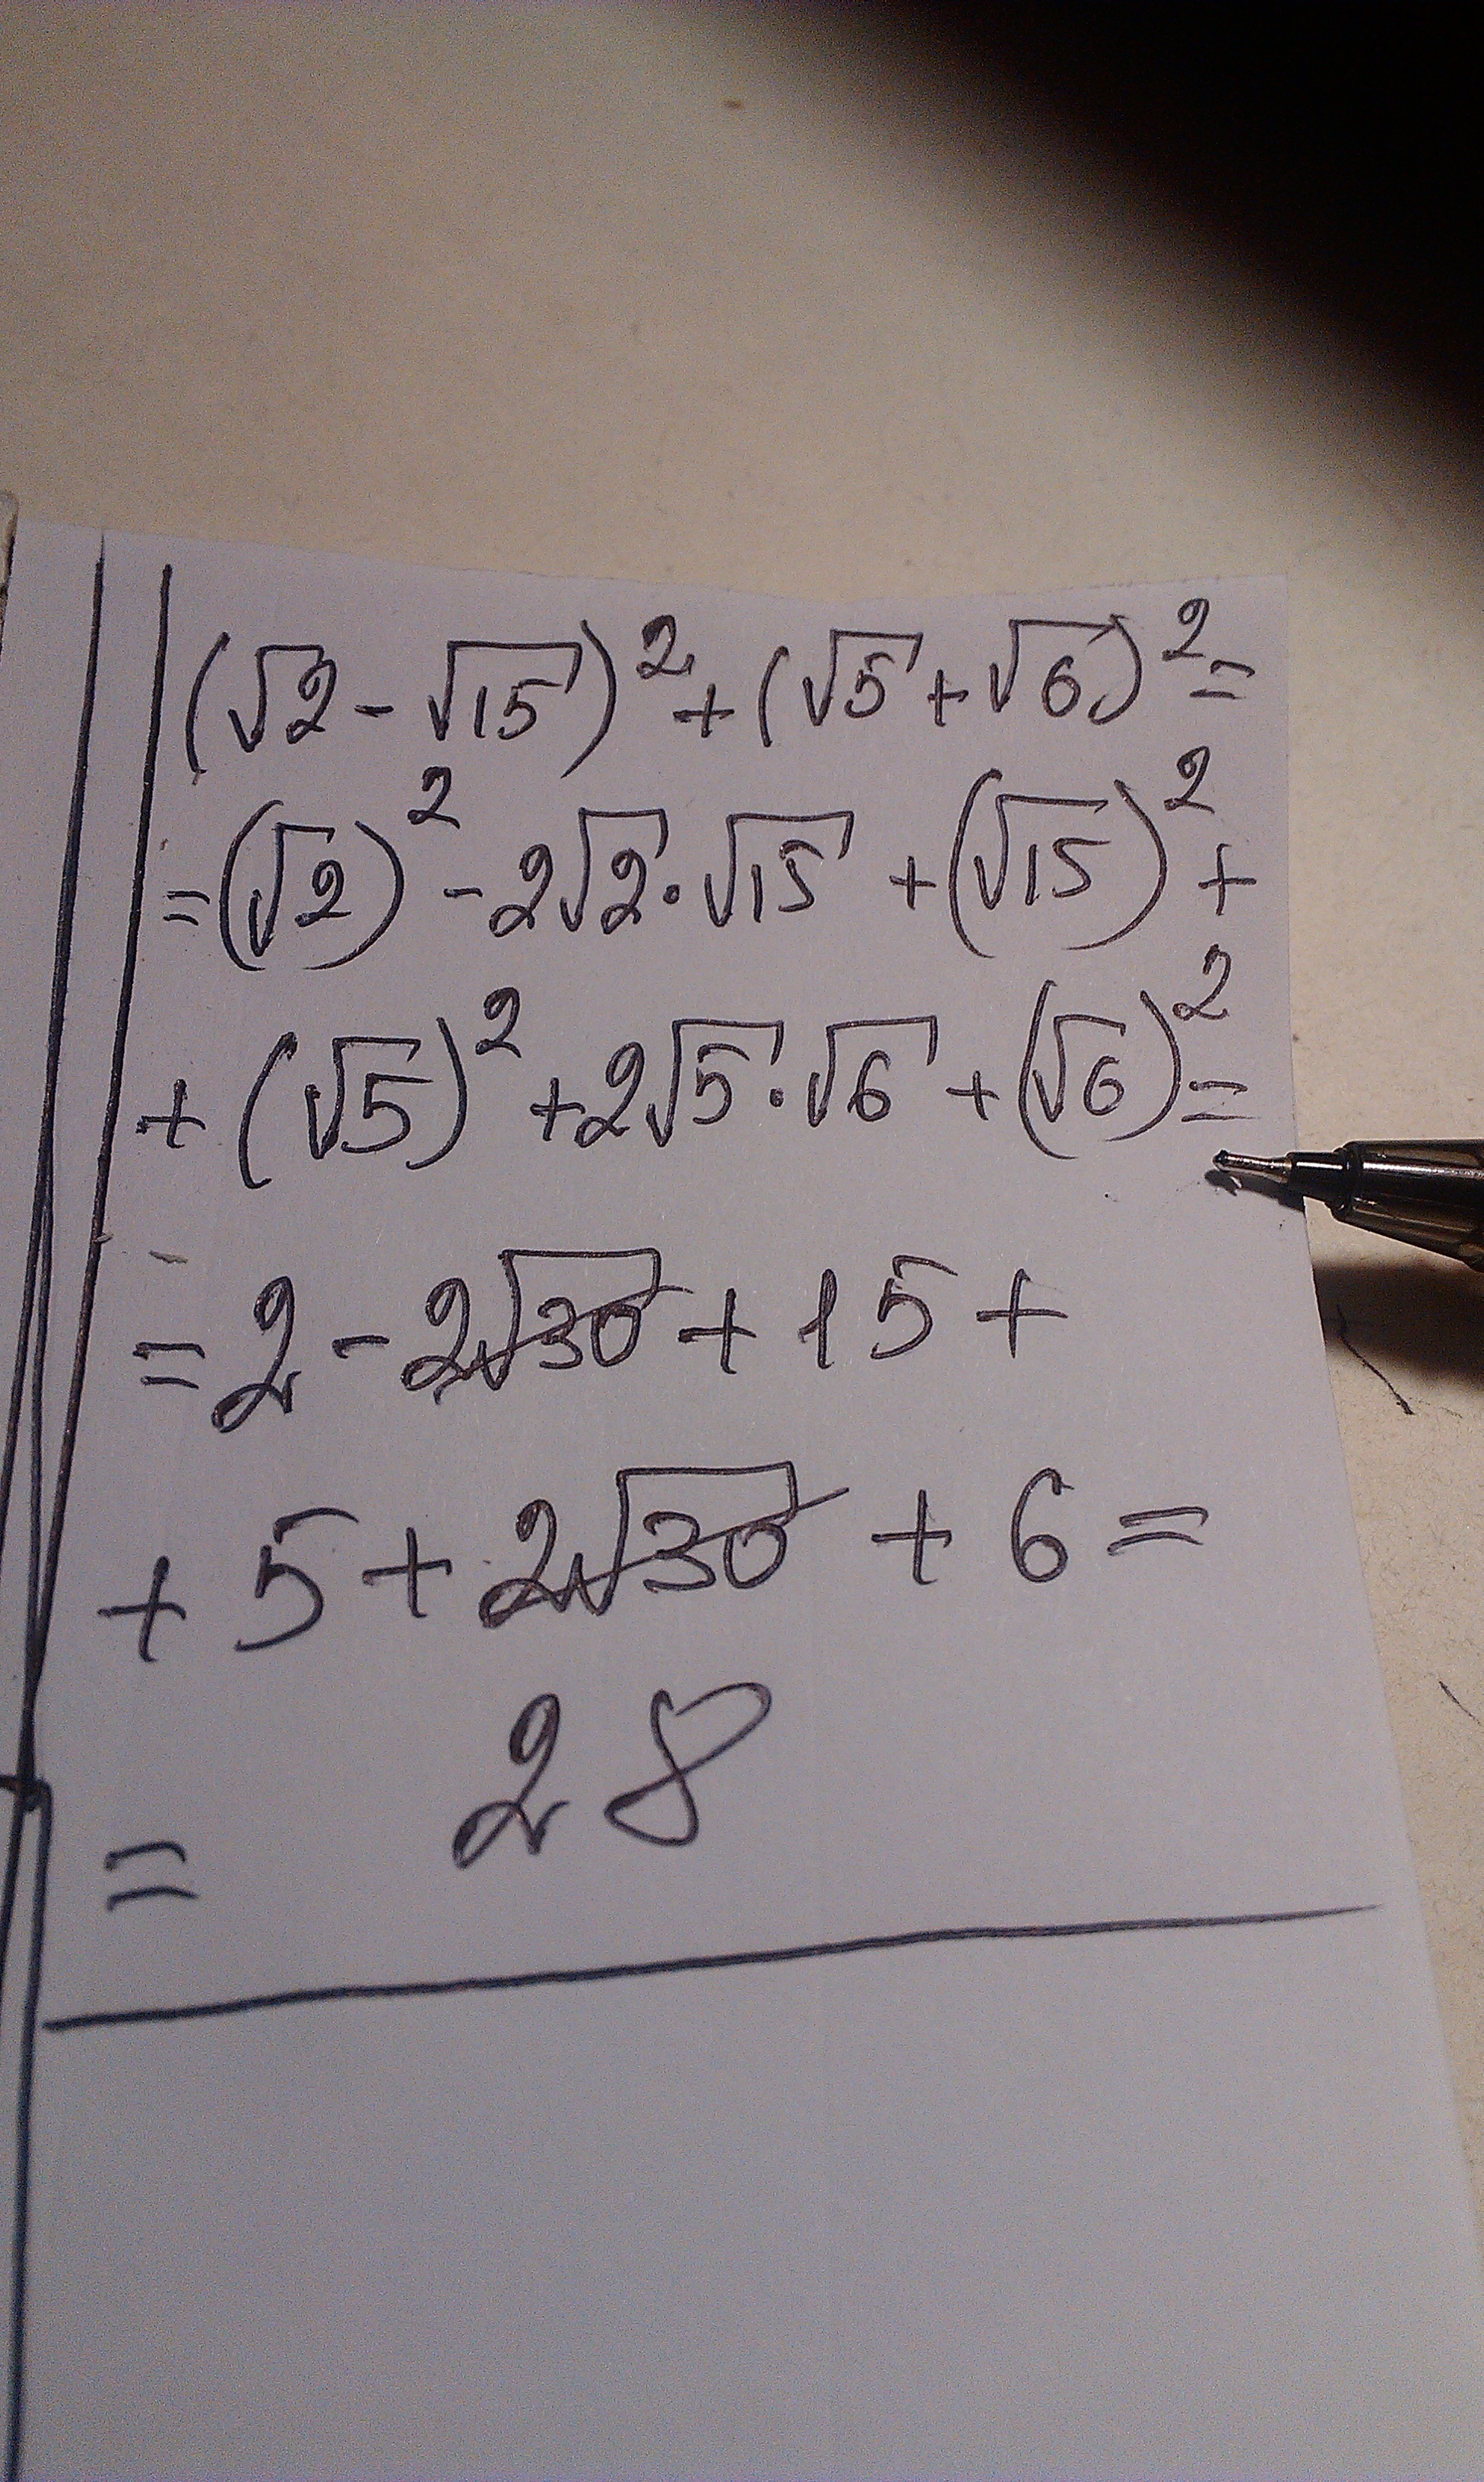 (√2 - √15)² + (√5 + √6)² =
= (√2)² - 2√2 · √15 + (√15)² +
+ (√5)² + 2√5 · √6 + (√6)² =
= 2 - 2√30 + 15 +
+ 5 + 2√30 + 6 =
= 28